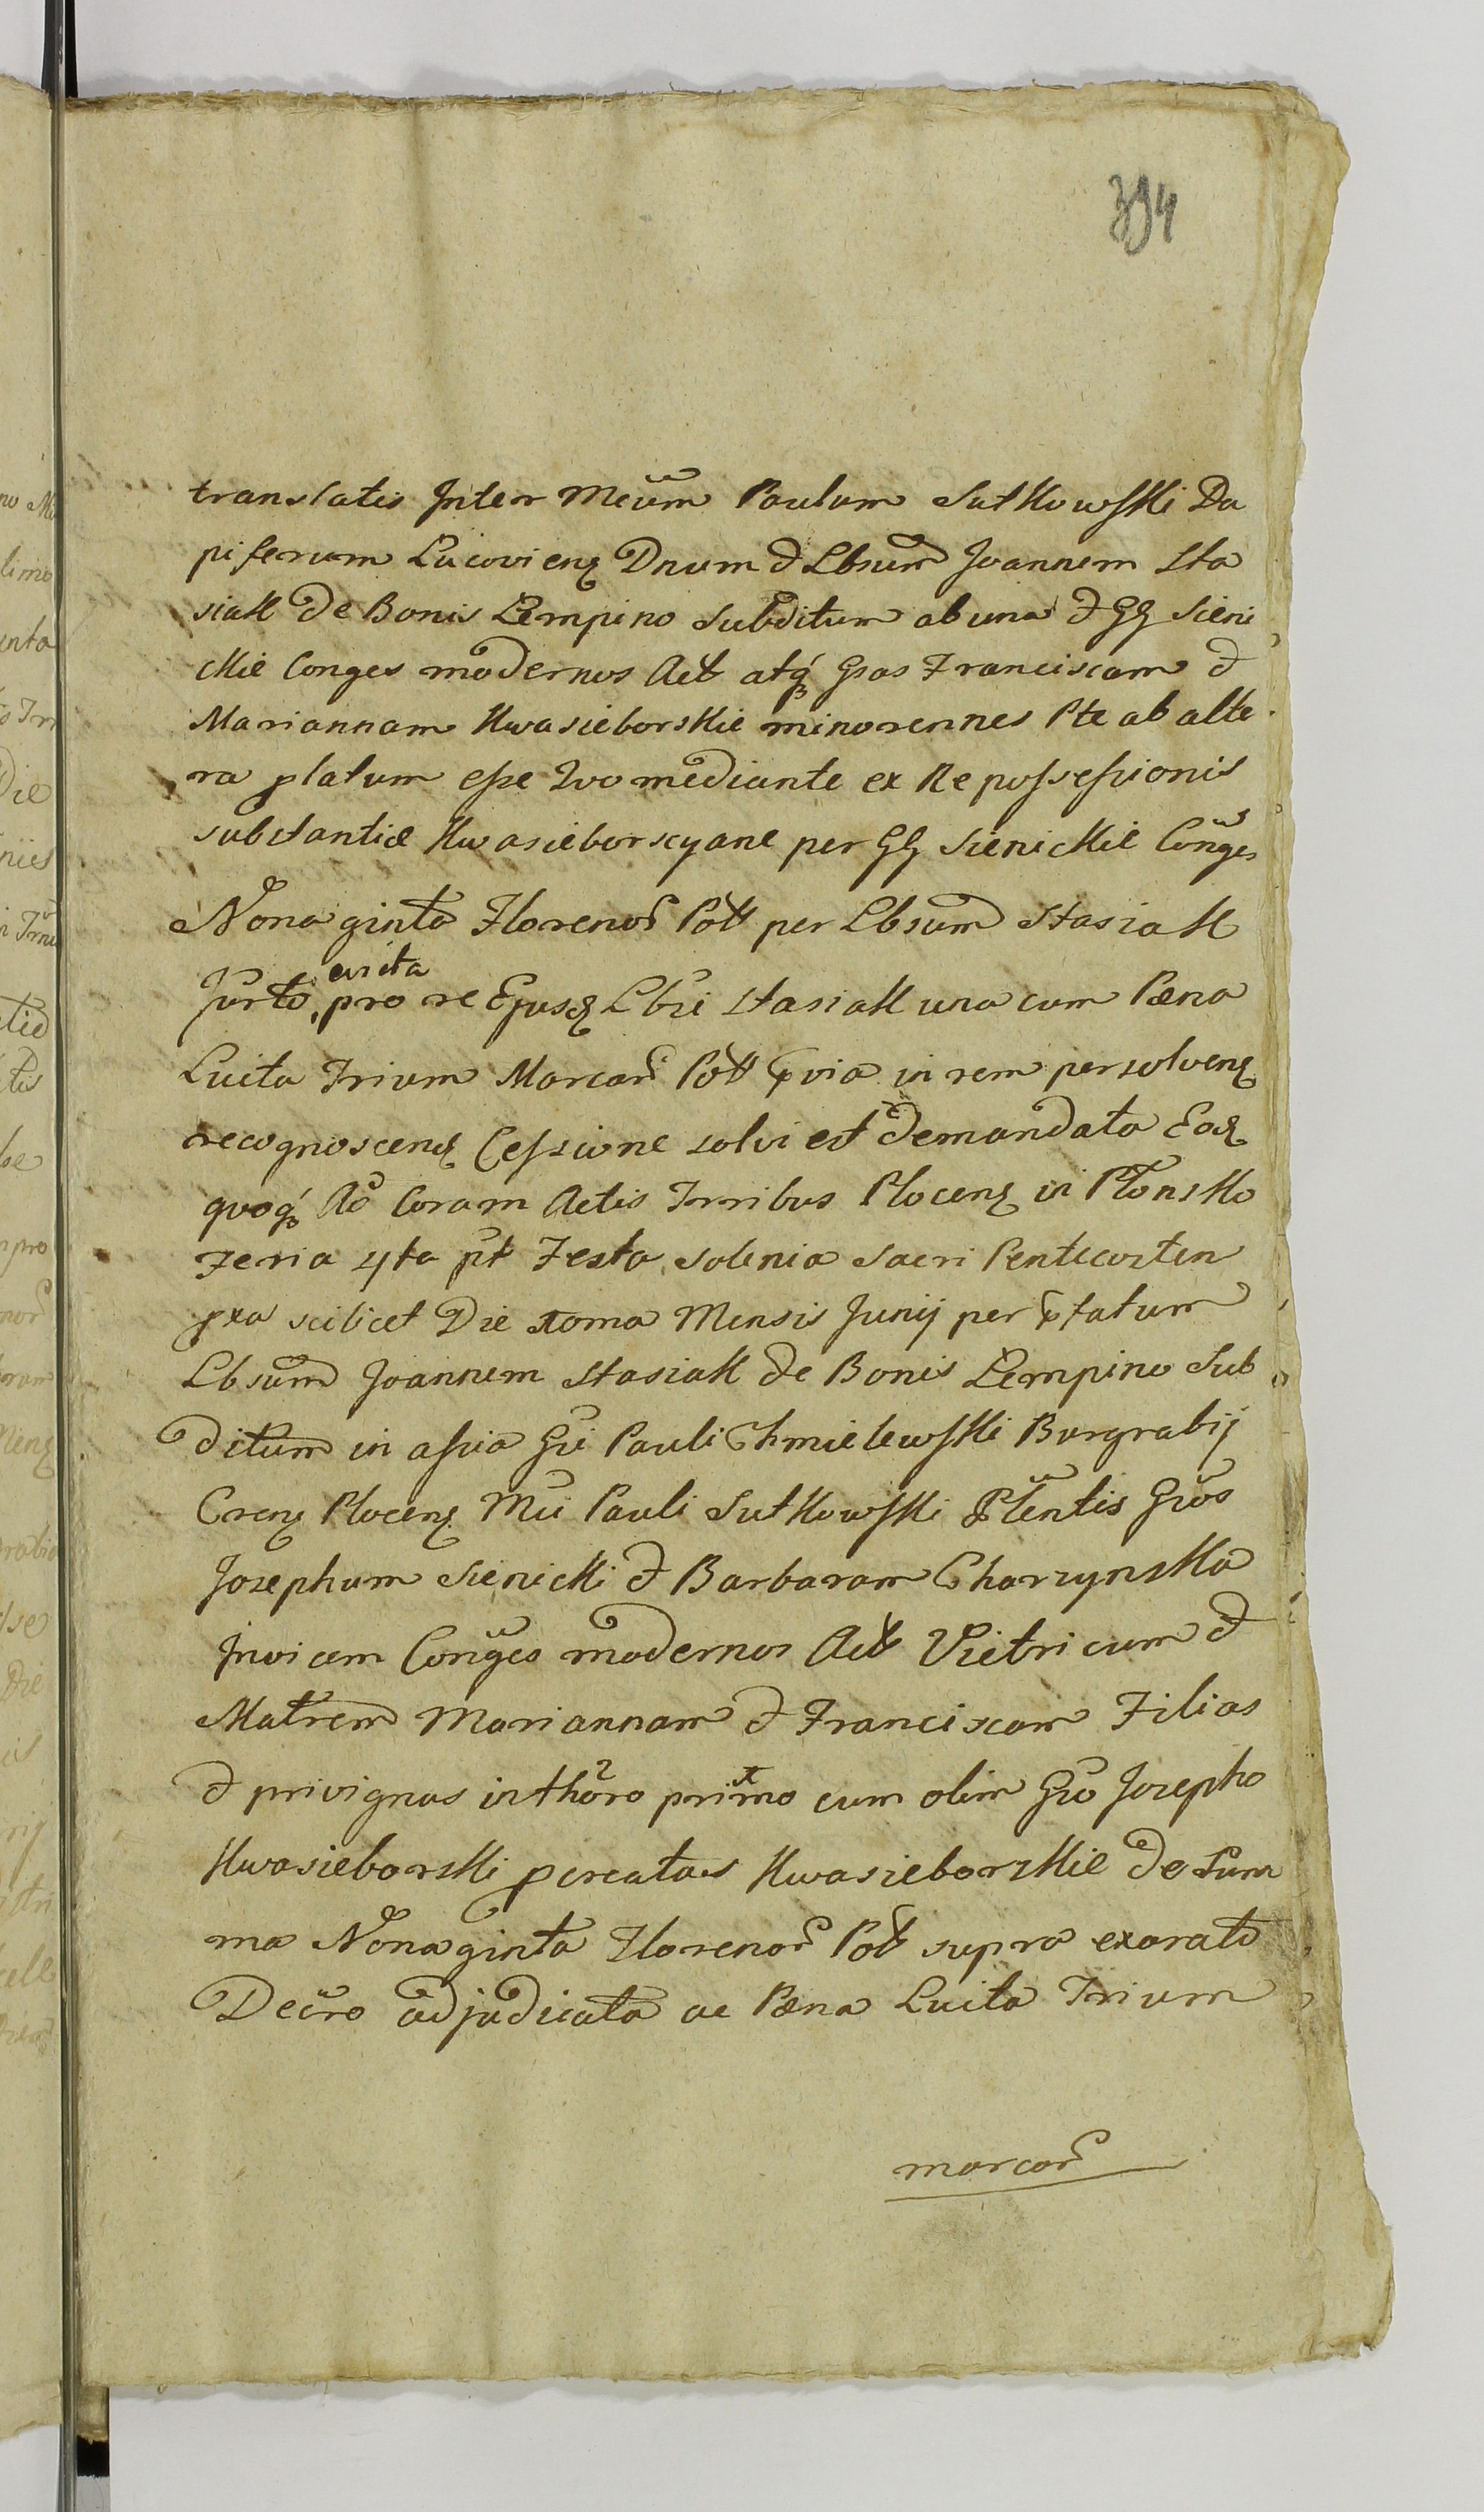 394
translatis Inter Mcum Paulum Sutkowski Da
piferum Lucoviens Dnum & Lbsum Joannem Sta
siak de Bonis Lempino Subditum ab una & GG Sieni
ckie Conges modernos Act atq Gsas Franciscam &
Mariannam Kwasieborskie minorennes Pte ab alte
ra platum esse Quo mediante ex Re possessionis
substantiæ Kwasieborscyane per GG Sienickie Conges
Nonaginta Florenor Poll per Lbsum Stasiak
evicta
Jurto, pro re Ejusd Lbsi Stasiak una cum Pæna
Luita Trium Marcar Poll via in rem persolvens
recognoscens Cessione solvi est demandata Eod
quoq Ao Coram Actis Trribus Plocens in Płonsko
Feria 4ta pt Festa Solenia Sacri Pentecosten
pxa scilicet Die xoma Mensis Junij per tatum
Lbsum Joannem Stasiak de Bonis Lempino Sub
ditum in assia Gsi Pauli Chmielewski Burgrabij
Crens Plocens Mci Pauli Sutkowski Plentis Gsos
Josephum Sienicki & Barbaram Charzynska
Invicem Conges modernos Act Vietricum &
Matrem Mariannam & Franciscam Filias
& privignas in thoro primo cum olim Gso Josepho
Kwasieborski pcreatas Kwasieborskie de Sum
ma Nonaginta Florenor Poll supra exarato
Decro adjudicata ac Pæna Luita Trium
marcar